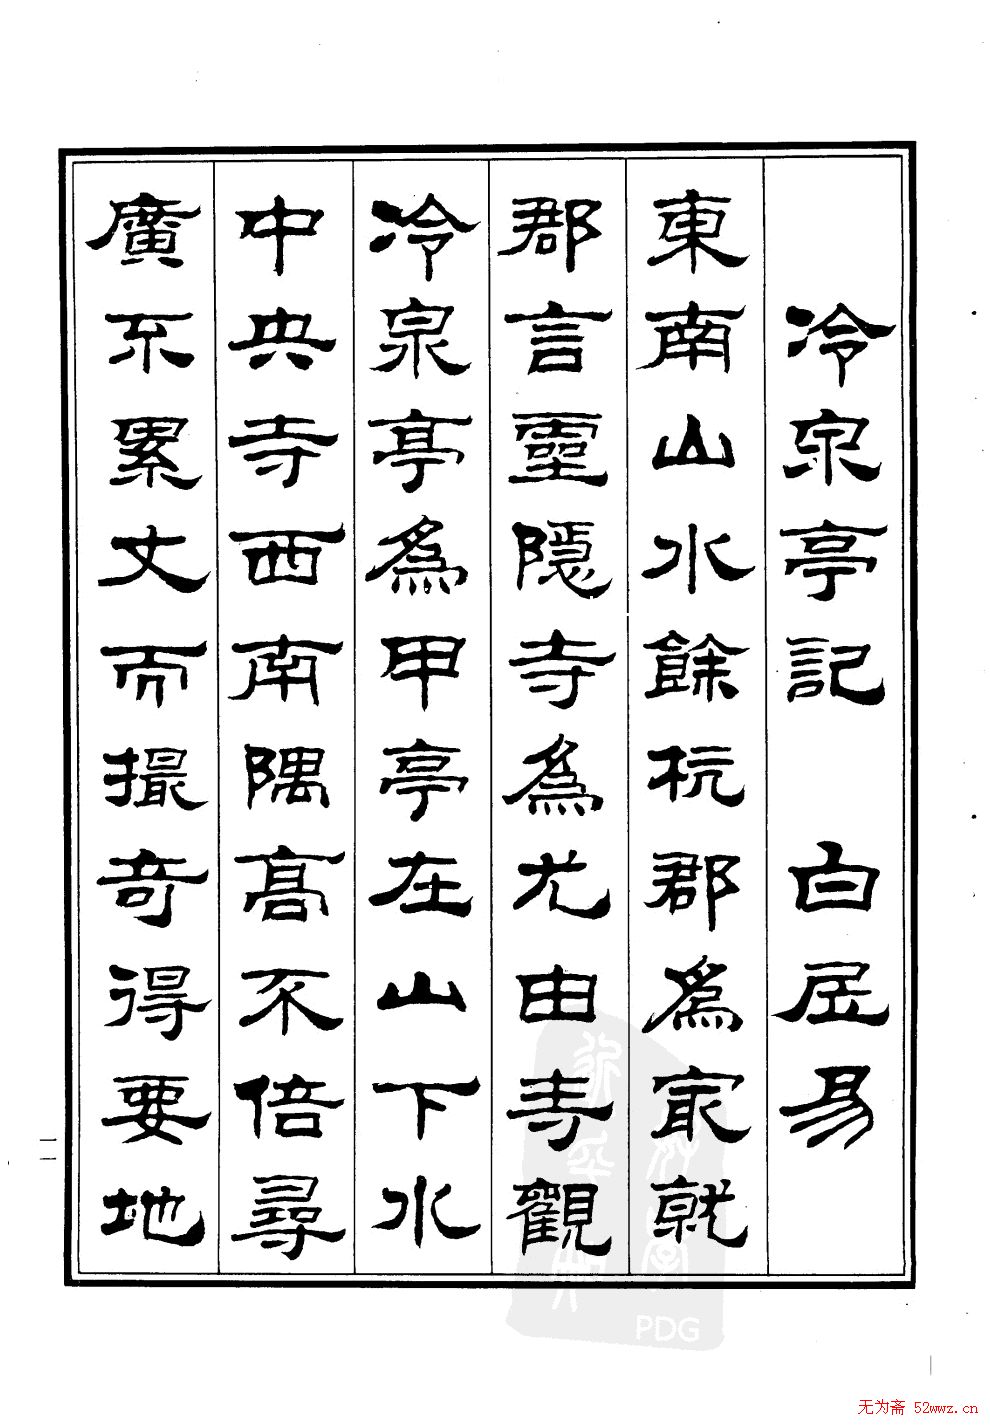 冷泉亭記 白居易
東南山水餘杭郡為㝡就
郡言靈隱寺為尤由寺觀
冷泉亭為甲亭在山下水
中央寺西南隅高不倍尋
廣不累丈而撮奇得要地
一一
PDG
无为斋 52wwz.cn